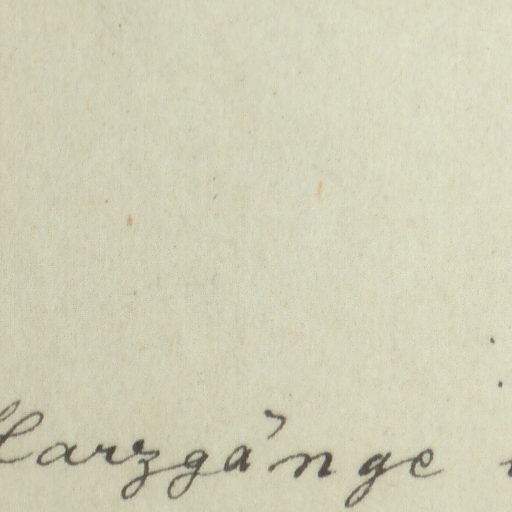 Harzgänge